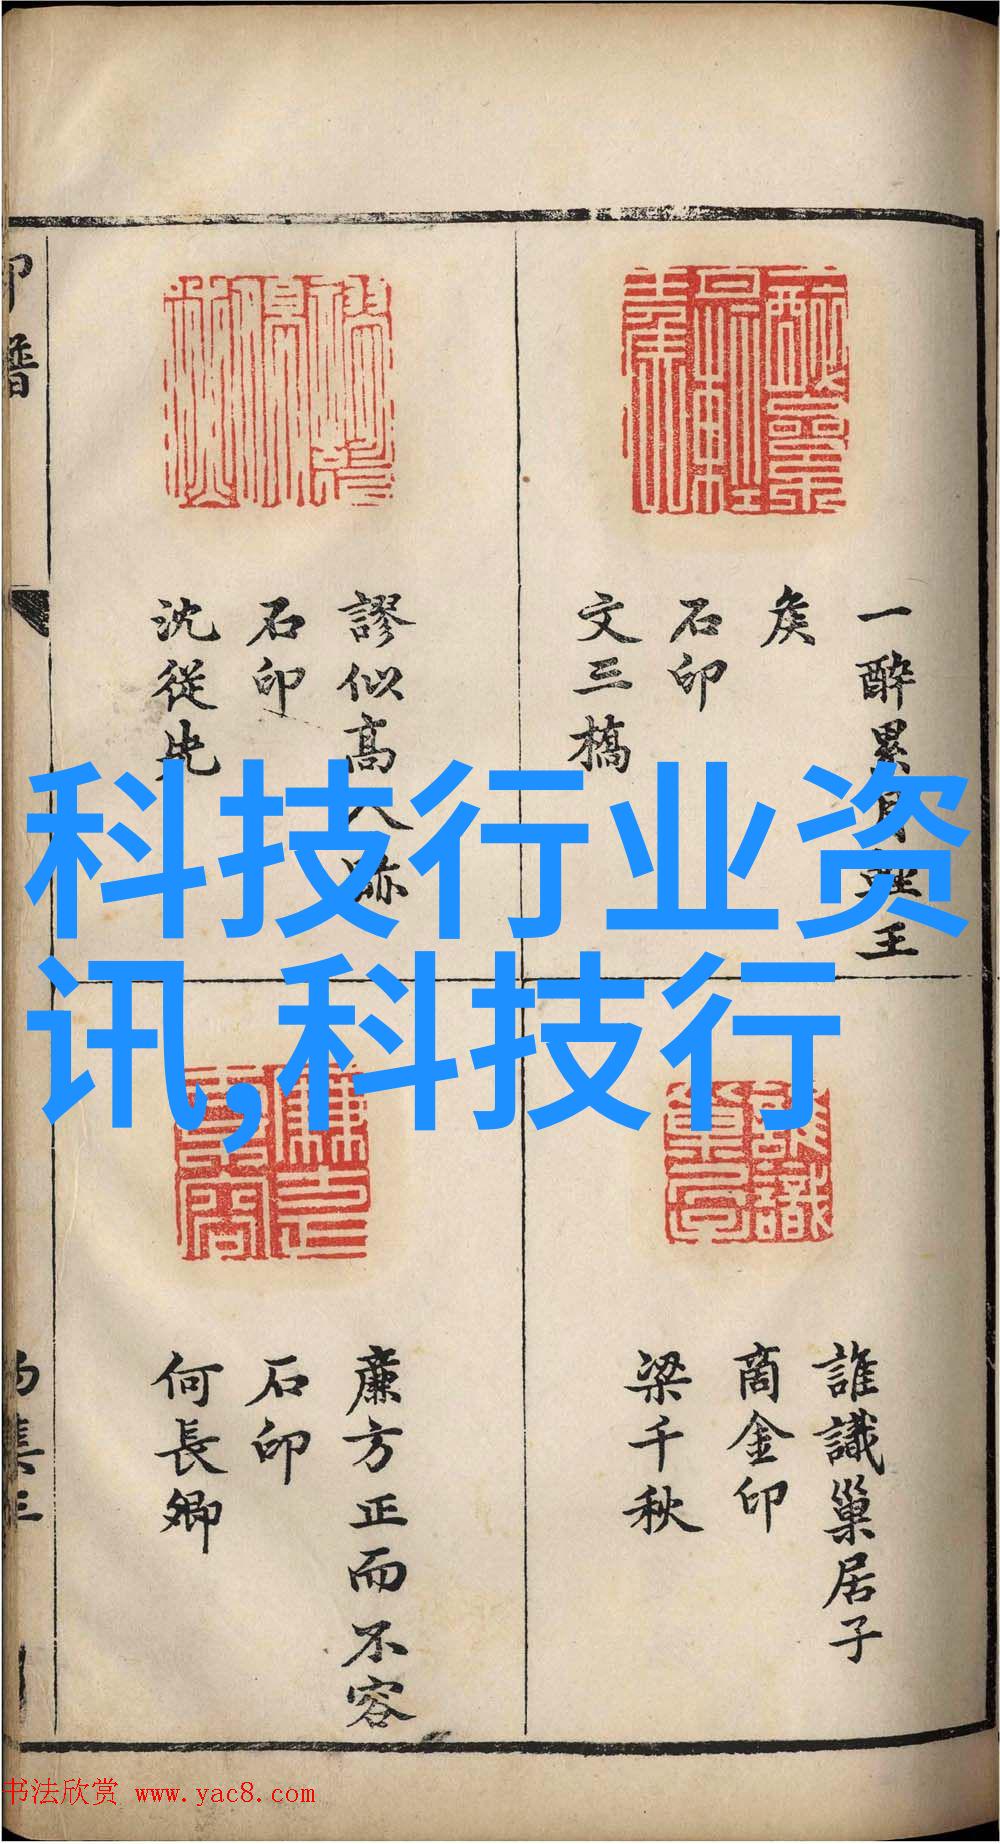 科技行业资
讯,科技行
一醉累月輕王
矦
石印
文三橋
謬似高人跡
石印
沈從先
誰識巢居子
商金印
梁千秋
廉方正而不容
石印
何長卿
印譜
书法欣赏 www.yac8.com